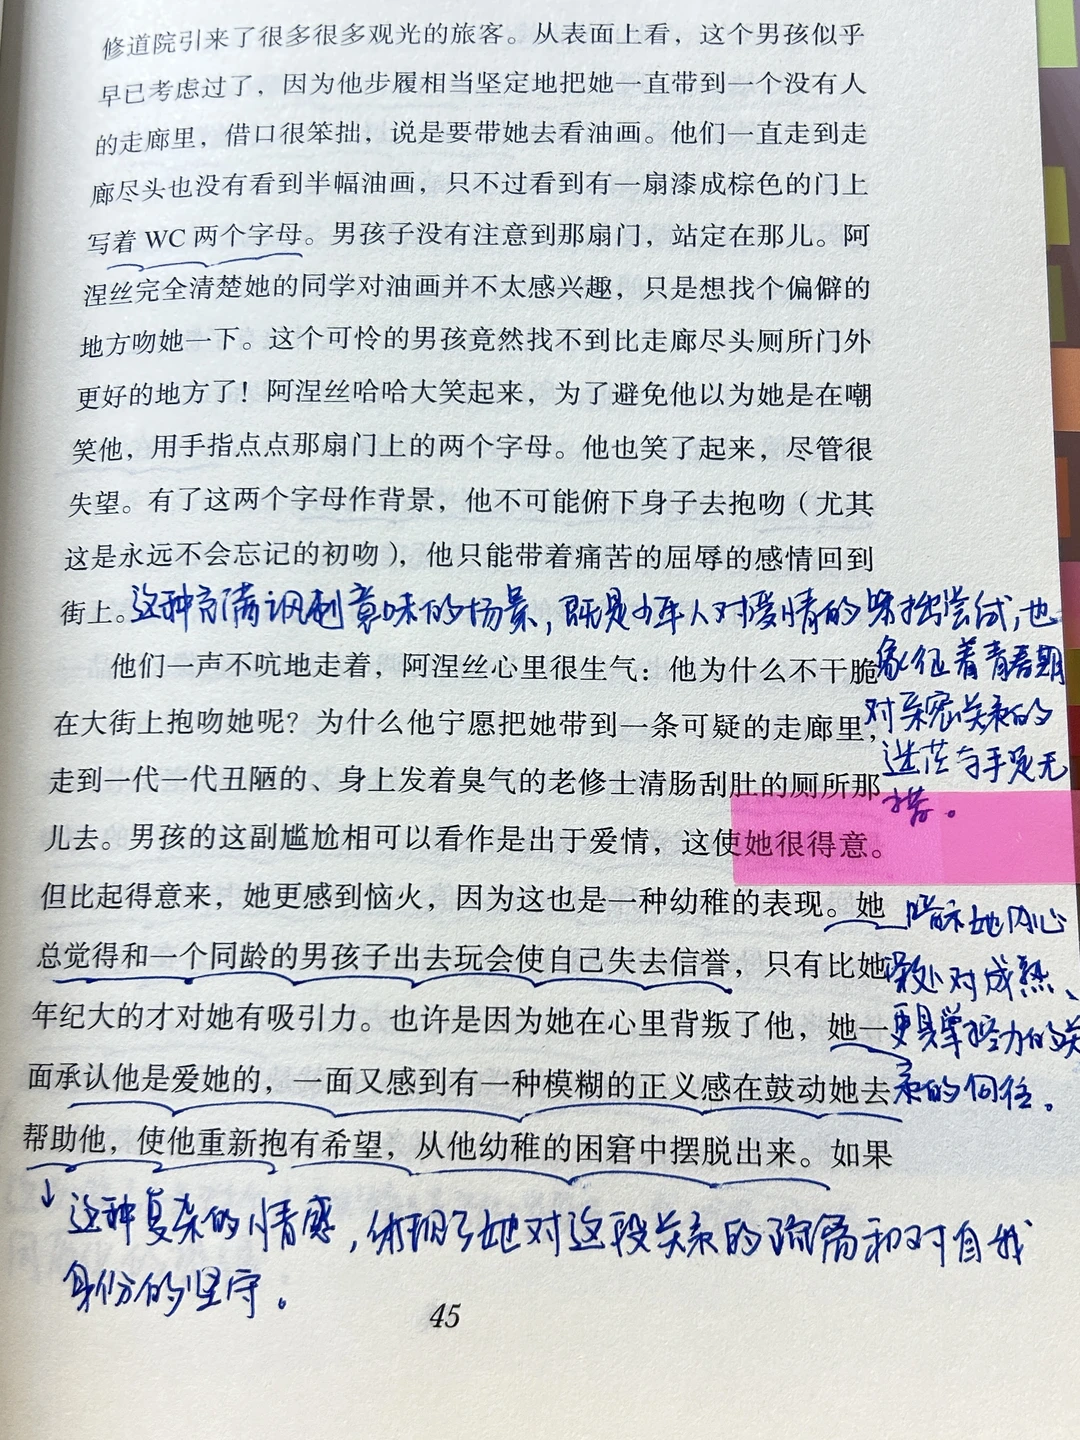 修道院引来了很多很多观光的旅客。从表面上看，这个男孩似乎
早已考虑过了，因为他步履相当坚定地把她一直带到一个没有人
的走廊里，借口很笨拙，说是要带她去看油画。他们一直走到走
廊尽头也没有看到半幅油画，只不过看到有一扇漆成棕色的门上
写着 WC 两个字母。男孩子没有注意到那扇门，站定在那儿。阿
涅丝完全清楚她的同学对油画并不太感兴趣，只是想找个偏僻的
地方吻她一下。这个可怜的男孩竟然找不到比走廊尽头厕所门外
更好的地方了！阿涅丝哈哈大笑起来，为了避免他以为她是在嘲
笑他，用手指点点那扇门上的两个字母。他也笑了起来，尽管很
失望。有了这两个字母作背景，他不可能俯下身子去抱吻（尤其
这是永远不会忘记的初吻），他只能带着痛苦的屈辱的感情回到
街上。
这种充满讽刺意味的场景，既是少年人对爱情的笨拙尝试，也
象征着青春期
对亲密关系的
迷茫与手足无
措。
他们一声不吭地走着，阿涅丝心里很生气：他为什么不干脆
在大街上抱吻她呢？为什么他宁愿把她带到一条可疑的走廊里，
走到一代一代丑陋的、身上发着臭气的老修士清肠刮肚的厕所那
儿去。男孩的这副尴尬相可以看作是出于爱情，这使她很得意。
但比起得意来，她更感到恼火，因为这也是一种幼稚的表现。她
总觉得和一个同龄的男孩子出去玩会使自己失去信誉，只有比她
年纪大的才对她有吸引力。也许是因为她在心里背叛了他，她一
面承认他是爱她的，一面又感到有一种模糊的正义感在鼓动她去
帮助他，使他重新抱有希望，从他幼稚的困窘中摆脱出来。如果
暗示她内心
深处对成熟、
更具掌控力的关
系的向往。
↓ 这种复杂的情感，体现了她对这段关系的矛盾和对自我
身份的坚守。
45